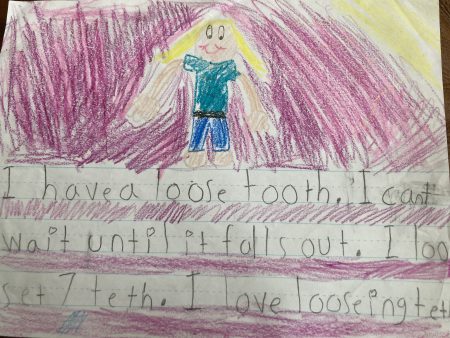 I have a loose tooth. I cant
wait until it falls out. I loo
set 7 teth. I love looseing teth